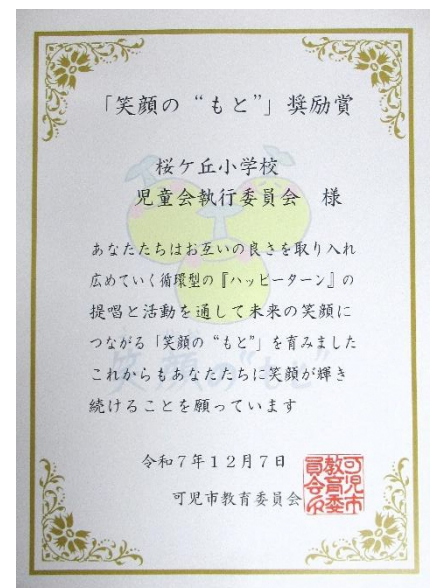 「笑顔の“もと”」奨励賞
桜ケ丘小学校
児童会執行委員会　様
あなたたちはお互いの良さを取り入れ
広めていく循環型の『ハッピーターン』の
提唱と活動を通して未来の笑顔に
つながる「笑顔の“もと”」を育みました
これからもあなたたちに笑顔が輝き
続けることを願っています
令和7年12月7日
可児市教育委員会
可児市
教育委
員会印